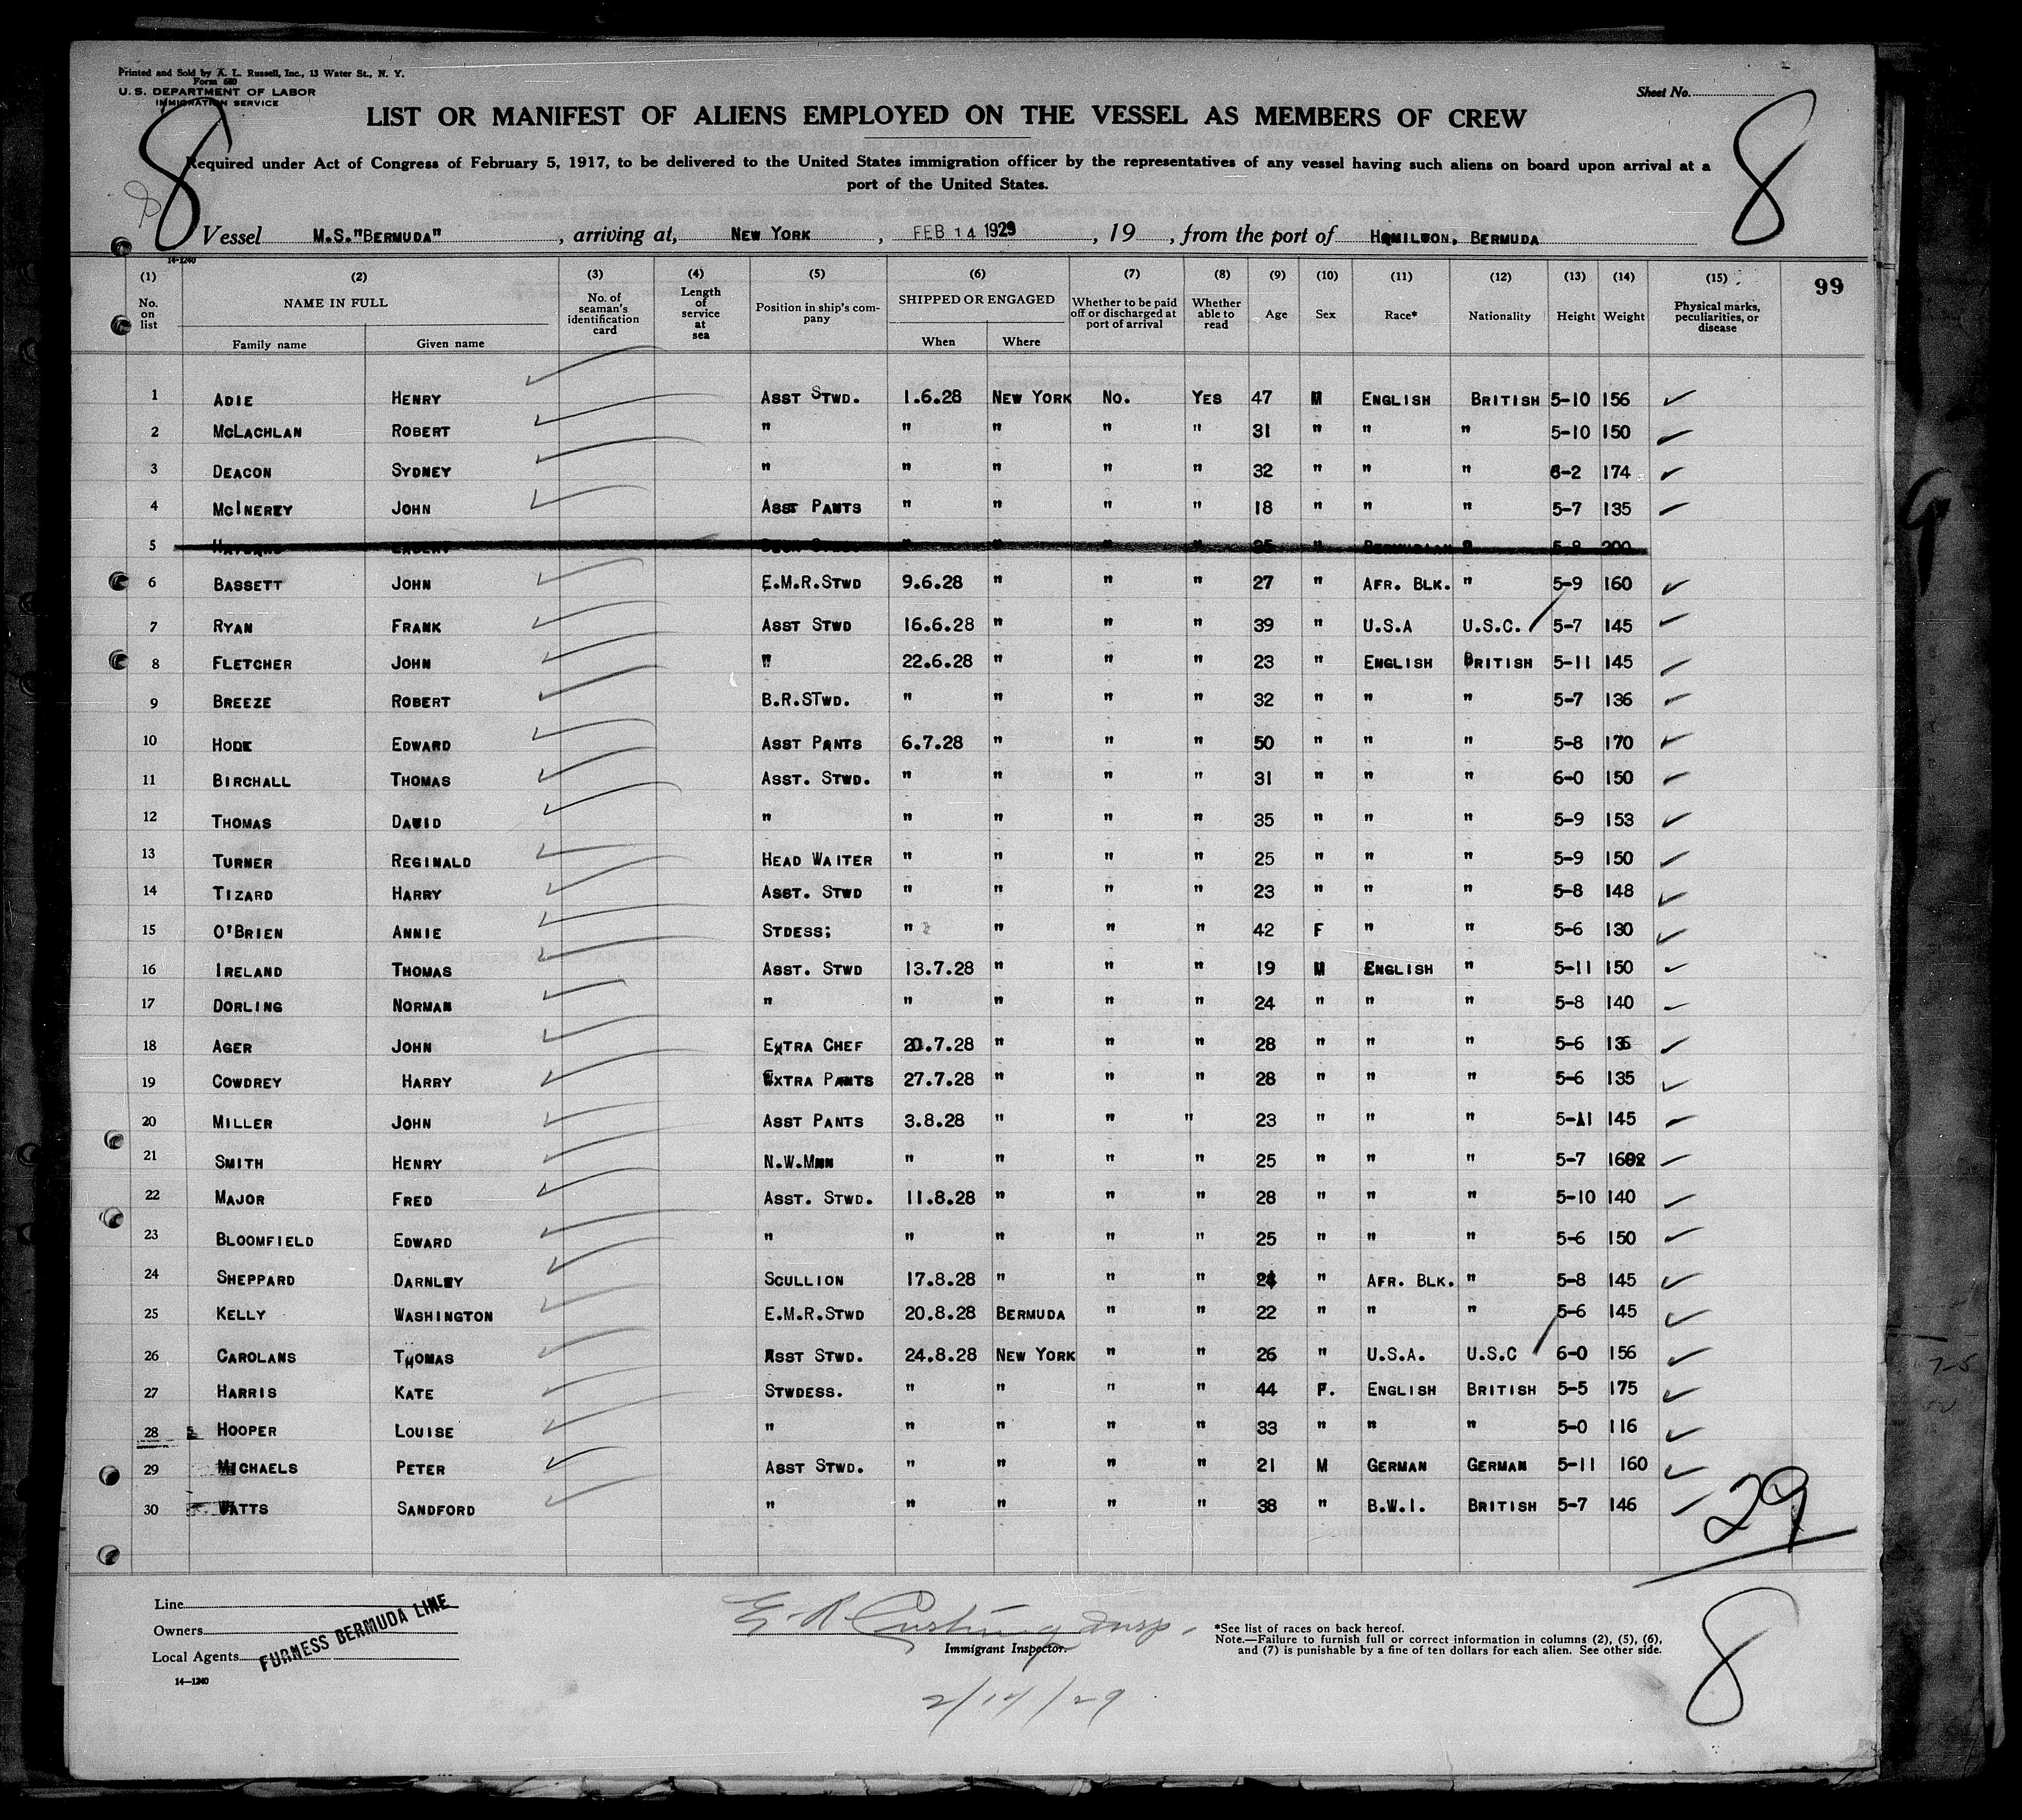 Printed and Sold by A. L. Russell, Inc., 13 Water St., N. Y.
Form 680
U. S. DEPARTMENT OF LABOR
IMMIGRATION SERVICE
Sheet No.
8
8
8
LIST OR MANIFEST OF ALIENS EMPLOYED ON THE VESSEL AS MEMBERS OF CREW
Required under Act of Congress of February 5, 1917, to be delivered to the United States immigration officer by the representatives of any vessel having such aliens on board upon arrival at a
port of the United States.
Vessel M.S."BERMUDA" , arriving at, NEW YORK , FEB 14 1929 , 19 , from the port of HAMILTON, BERMUDA
14-1240
(1) (2) (3) (4) (5) (6) (7) (8) (9) (10) (11) (12) (13) (14) (15) 99
No. on list NAME IN FULL Family name Given name No. of seaman's identification card Length of service at sea Position in ship's company SHIPPED OR ENGAGED When Where Whether to be paid off or discharged at port of arrival Whether able to read Age Sex Race* Nationality Height Weight Physical marks, peculiarities, or disease
1 ADIE HENRY ASST STWD. 1.6.28 NEW YORK NO. YES 47 M ENGLISH BRITISH 5-10 156
2 MCLACHLAN ROBERT " " " " " 31 " " " 5-10 150
3 DEACON SYDNEY " " " " " 32 " " " 6-2 174
4 MCINEREY JOHN ASST PANTS " " " " 18 " " " 5-7 135
5 " " " " 35 " BERMUDIAN " 5-8 200
6 BASSETT JOHN E.M.R.STWD 9.6.28 " " " 27 " AFR. BLK. " 5-9 160
7 RYAN FRANK ASST STWD 16.6.28 " " " 39 " U.S.A U.S.C. 5-7 145
8 FLETCHER JOHN " 22.6.28 " " " 23 " ENGLISH BRITISH 5-11 145
9 BREEZE ROBERT B.R.STWD. " " " " 32 " " " 5-7 136
10 HODE EDWARD ASST PANTS 6.7.28 " " " 50 " " " 5-8 170
11 BIRCHALL THOMAS ASST. STWD. " " " " 31 " " " 6-0 150
12 THOMAS DAVID " " " " " 35 " " " 5-9 153
13 TURNER REGINALD HEAD WAITER " " " " 25 " " " 5-9 150
14 TIZARD HARRY ASST. STWD " " " " 23 " " " 5-8 148
15 O'BRIEN ANNIE STDESS; " " " " 42 F " " 5-6 130
16 IRELAND THOMAS ASST. STWD 13.7.28 " " " 19 M ENGLISH " 5-11 150
17 DORLING NORMAN " " " " " 24 " " " 5-8 140
18 AGER JOHN EXTRA CHEF 20.7.28 " " " 28 " " " 5-6 136
19 COWDREY HARRY EXTRA PANTS 27.7.28 " " " 28 " " " 5-6 135
20 MILLER JOHN ASST PANTS 3.8.28 " " " 23 " " " 5-11 145
21 SMITH HENRY N.W.MNN " " " " 25 " " " 5-7
22 MAJOR FRED ASST. STWD. 11.8.28 " " " 28 " " " 5-10 140
23 BLOOMFIELD EDWARD " " " " " 25 " " " 5-6 150
24 SHEPPARD DARNLEY SCULLION 17.8.28 " " " " AFR. BLK. " 5-8 145
25 KELLY WASHINGTON E.M.R.STWD 20.8.28 BERMUDA " " 22 " " " 5-6 145
26 CAROLANS THOMAS ASST STWD. 24.8.28 NEW YORK " " 26 " U.S.A. U.S.C 6-0 156
27 HARRIS KATE STWDESS. " " " " 44 F. ENGLISH BRITISH 5-5 175
28 HOOPER LOUISE " " " " " 33 " " " 5-0 116
29 MICHAELS PETER ASST STWD. " " " " 21 M GERMAN GERMAN 5-11 160
30 WATTS SANDFORD " " " " " 38 " B.W.I. BRITISH 5-7 146
29
8
Line
Owners
Local Agents
FURNESS BERMUDA LINE
14—1240
E. R. Cushing Insp.
Immigrant Inspector.
2/14/29
*See list of races on back hereof.
Note.—Failure to furnish full or correct information in columns (2), (5), (6),
and (7) is punishable by a fine of ten dollars for each alien. See other side.